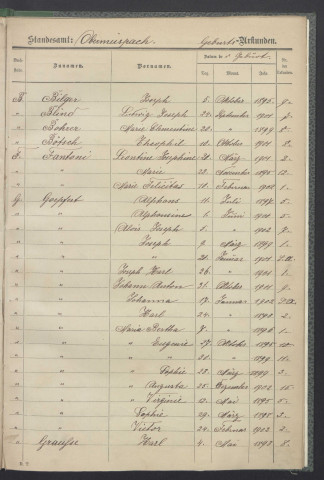 Standesamt: Obermuespach. Geburts-Urkunden.
Zunamen. Vornamen. Tag Monat Jahr
B. Bilger Joseph 5. Oktober 1895.
" Blind Ludwig Joseph 22. September 1901
" Bohrer Marie Clementine 28. " 1899 8.
" Bötsch Theophil 10. Oktober 1901
F. Fantoni Leontine Josephine 21. März 1901 2.
" " Marie 22. November 1895 12.
" " Marie Felicitas 11. Februar 1900 1.
G. Goepfert Alphons 11. Juli 1897 5.
" " Alphonsine 6. Juni 1900 5.
" " Alois Joseph 5. " 1902 7.
" " Joseph 9. März 1899 1.
" " " 21. Januar 1901
" " Joseph Karl 26. " 1901 1.
" " Johann Anton 21. Oktober 1901 9.
" " Johanna 17. Januar 1902
" " Karl 24. " 1900 2.
" " Maria Bertha 7. " 1896 1.
" " " Eugenie 27. Oktober 1895
" " " " 20. " 1899 11.
" " " Sophie 23. März 1899 3.
" " " Augusta 25. Dezember 1902 15.
" " " Virginie 12. Mai 1895 5.
" " Sophie 29. März 1895 3.
" " Victor 24. Februar 1902 2.
" Karl 4. Mai 1893 8.